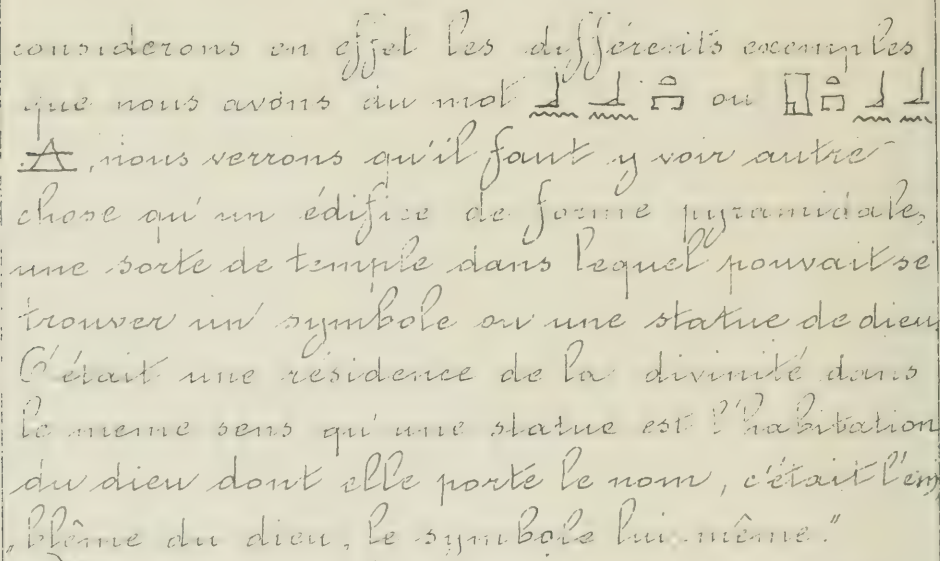 considerons en effet les différents exemples
que nous avons du mot 𓃀𓈖𓃀𓈖𓏏𓉐 ou 𓉗𓏏𓉐𓃀𓈖𓃀𓈖
, nous verrons qu'il faut y voir autre
chose qu'un édifice de forme pyramidale,
une sorte de temple dans lequel pouvait se
trouver un symbole ou une statue de dieu
C'était une résidence de la divinité dans
le meme sens qu'une statue est l'habitation
du dieu dont elle porte le nom, c'était l'em
„blême du dieu, le symbole lui-même."